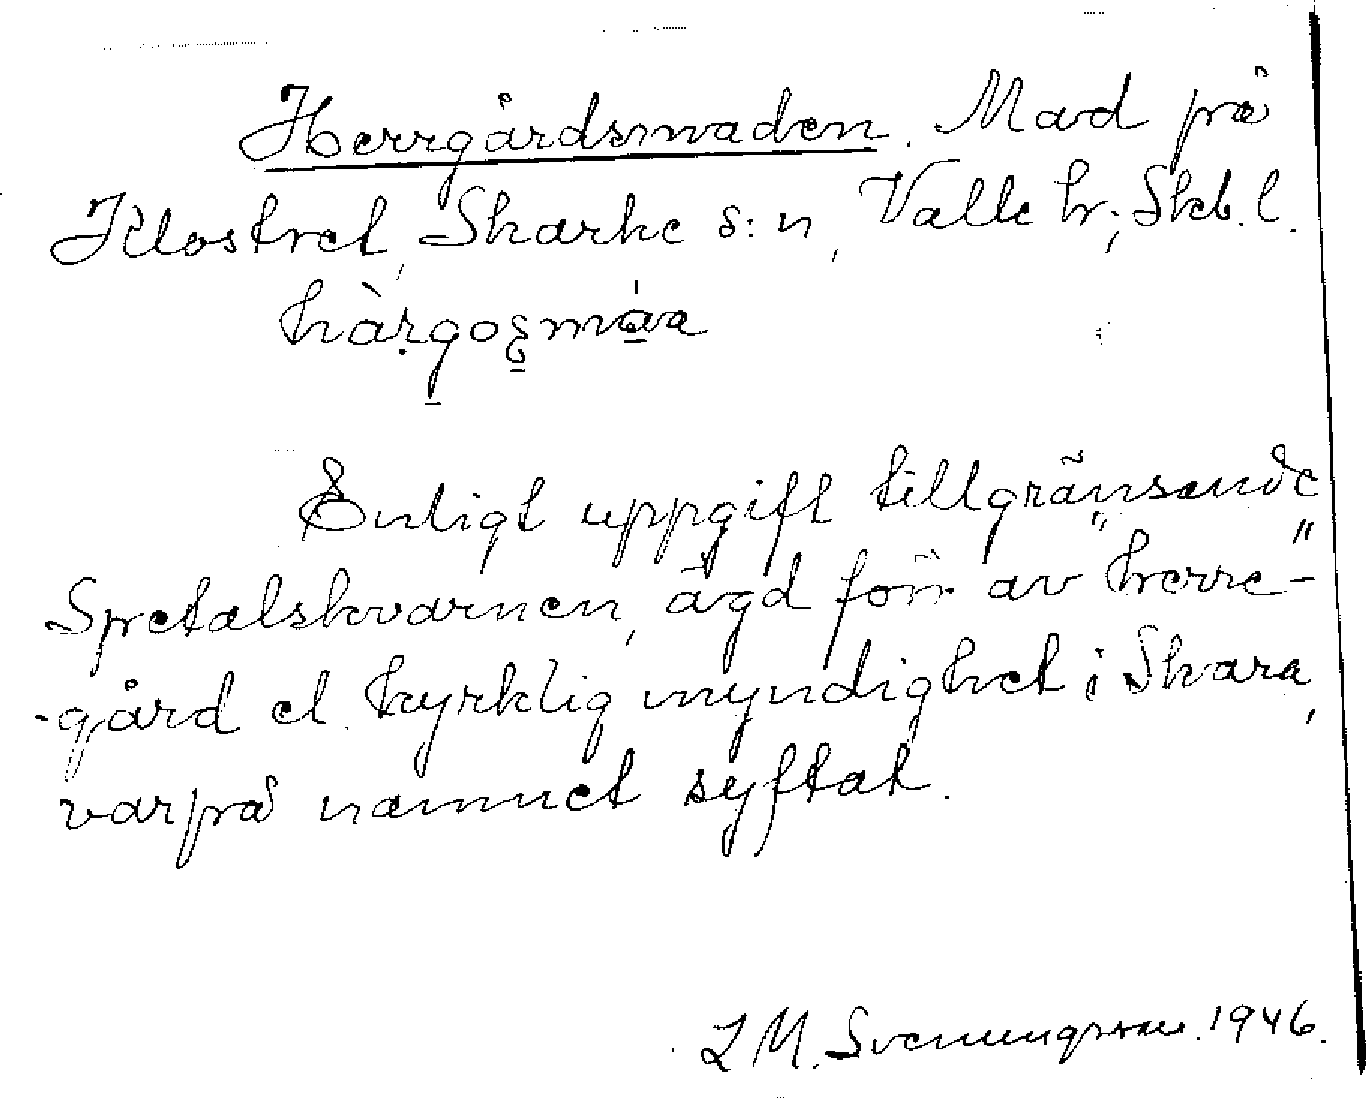 Herrgårdsmaden. Mad på
Klostret, Skarke s:n, Valle hr; Skb. l.
hàrgosmáa
Enligt uppgift tillgränsande
Spretalskvarnen, ägd förr av "herre-"
-gård el. kyrklig myndighet i Skara,
varpå namnet syftat.
L M. Svenungsson. 1946.